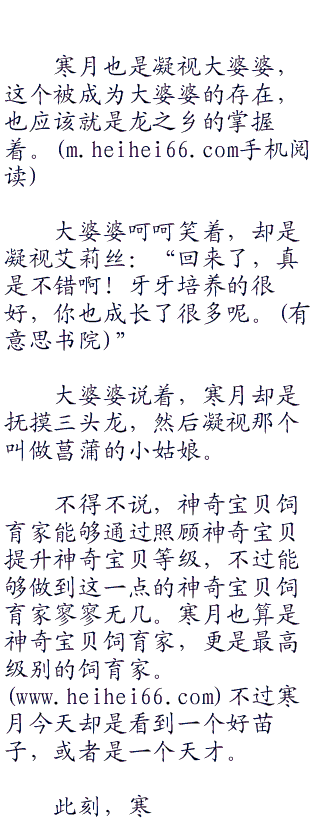 寒月也是凝视大婆婆，
这个被成为大婆婆的存在，
也应该就是龙之乡的掌握
着。(m.heihei66.com手机阅
读)
大婆婆呵呵笑着，却是
凝视艾莉丝：“回来了，真
是不错啊！牙牙培养的很
好，你也成长了很多呢。(有
意思书院)”
大婆婆说着，寒月却是
抚摸三头龙，然后凝视那个
叫做菖蒲的小姑娘。
不得不说，神奇宝贝饲
育家能够通过照顾神奇宝贝
提升神奇宝贝等级，不过能
够做到这一点的神奇宝贝饲
育家寥寥无几。寒月也算是
神奇宝贝饲育家，更是最高
级别的饲育家。
(www.heihei66.com)不过寒
月今天却是看到一个好苗
子，或者是一个天才。
此刻，寒